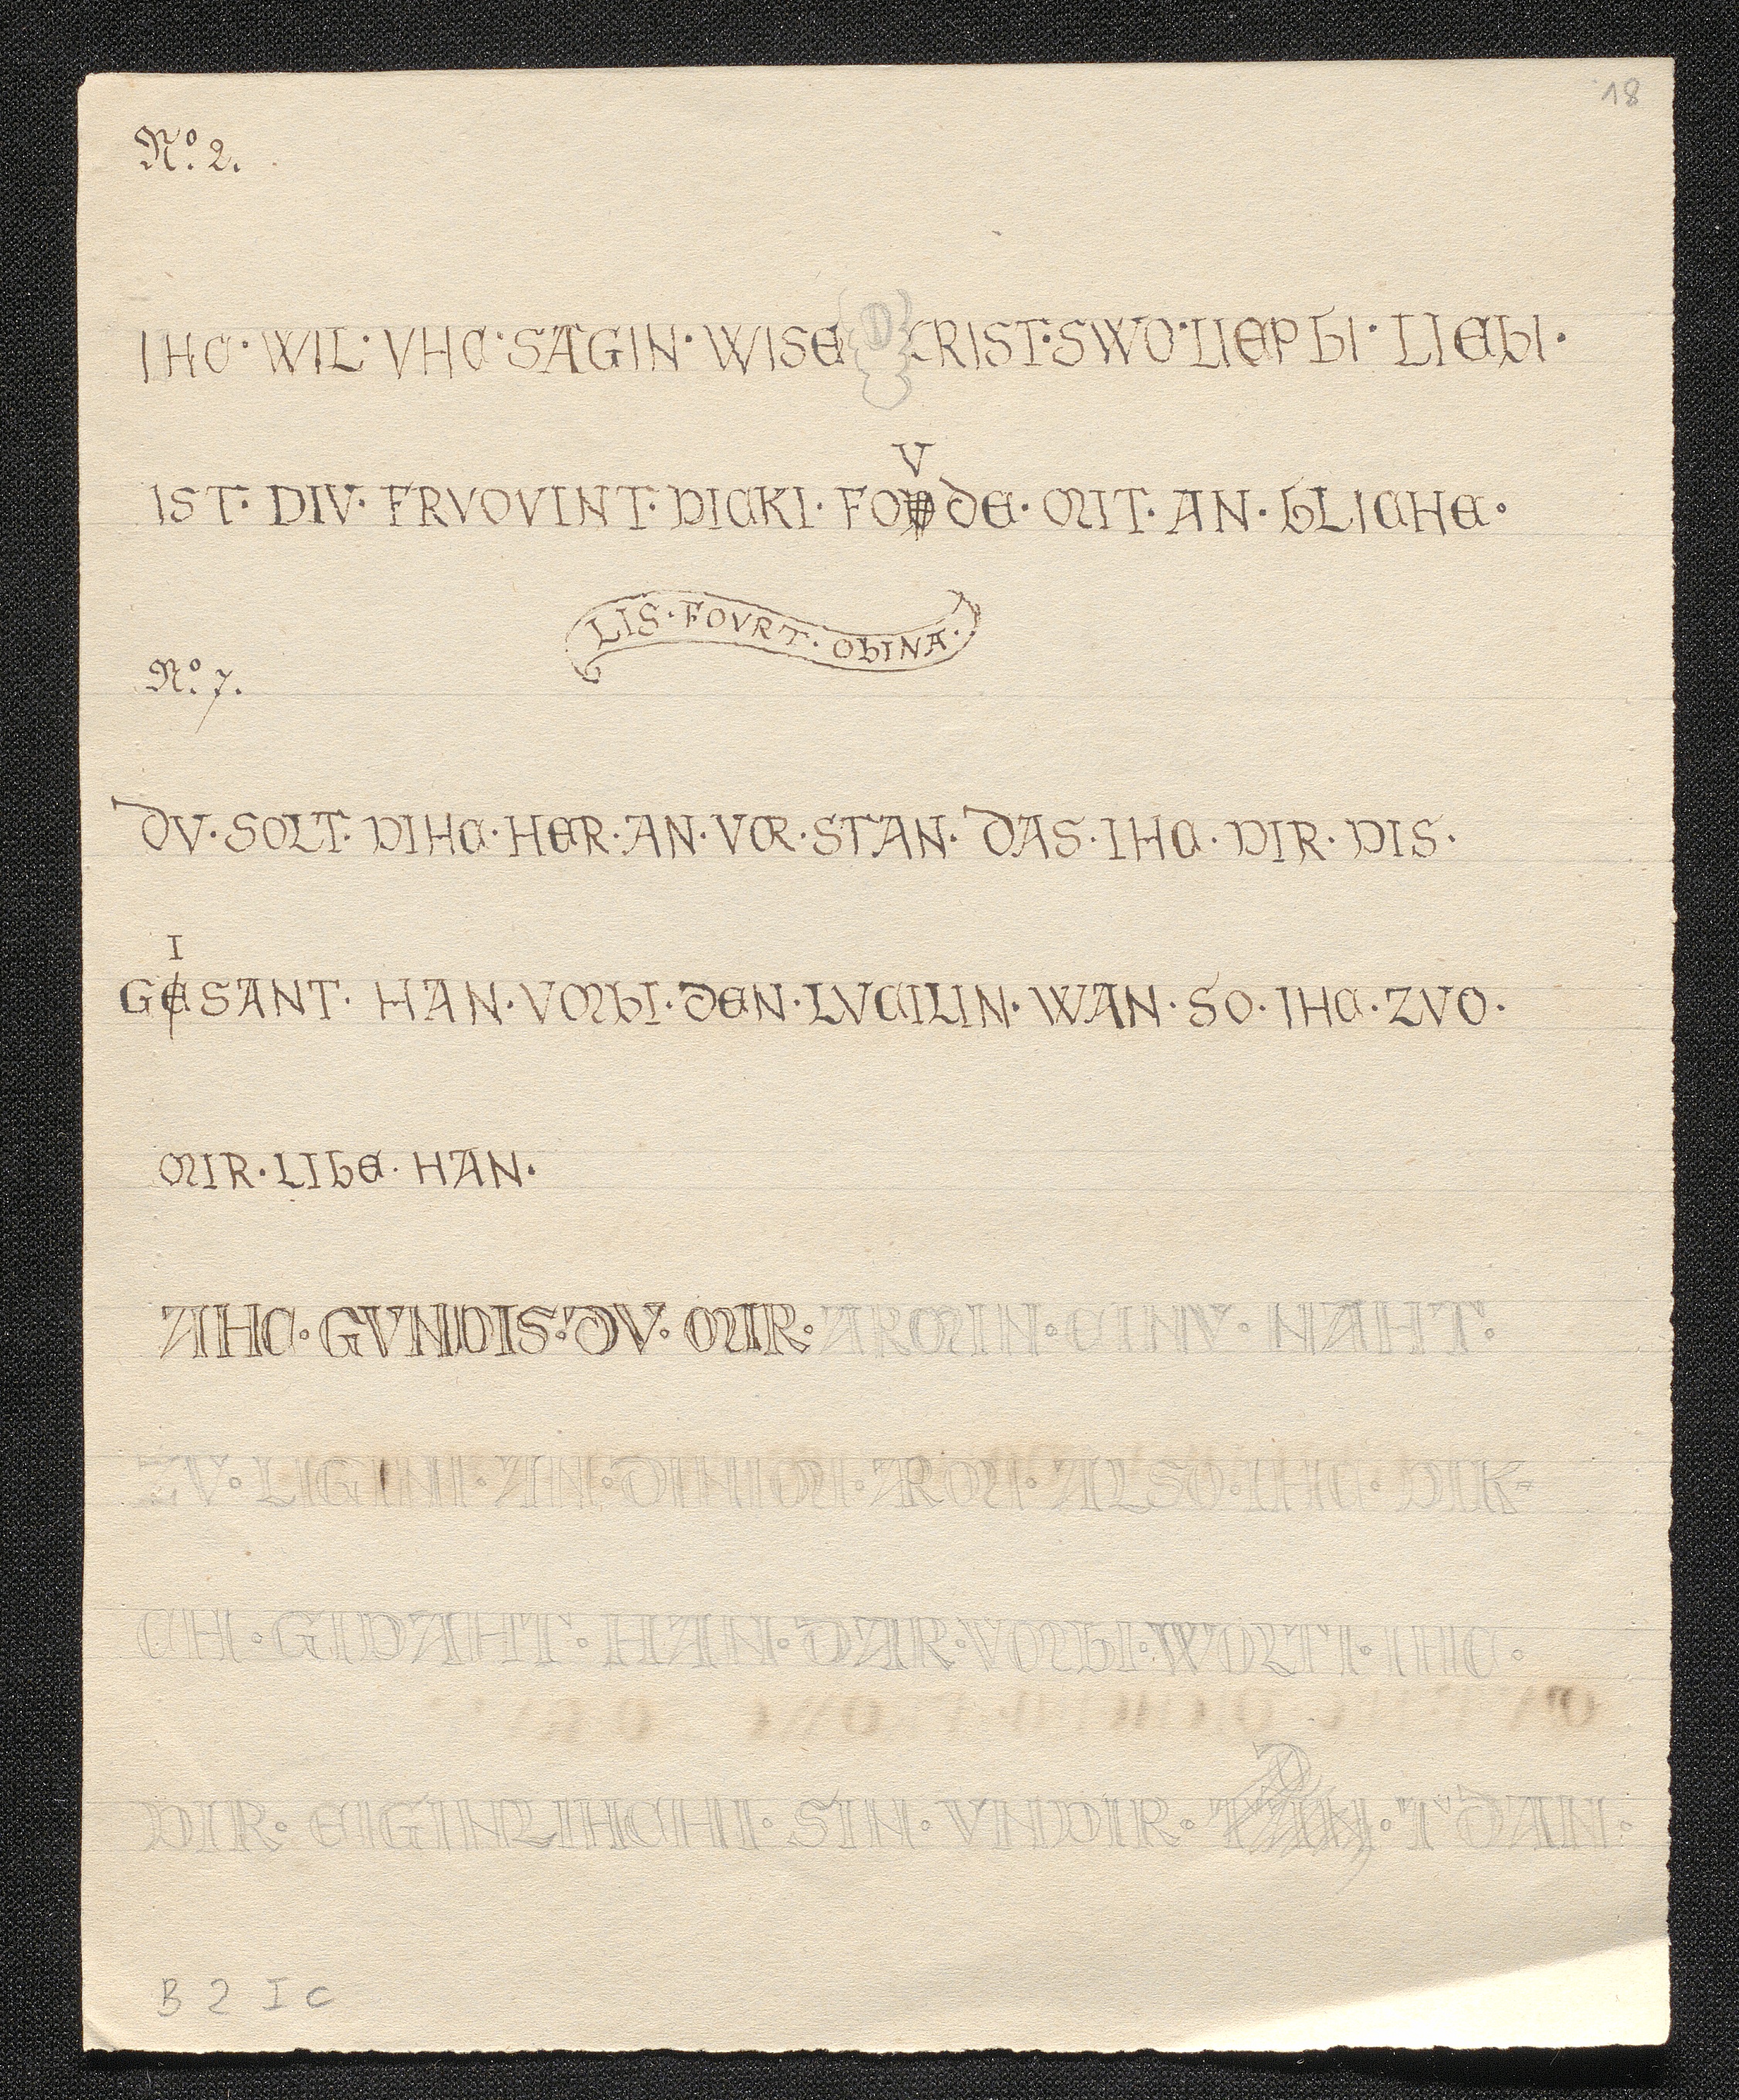 18
No. 2.
IHC · WIL · VHC · SAGIN · WISE D CRIST · SWO · LIEP BI · LIEBI ·
V
IST · DIV · FRVOVINT · DICKI · FO DE · MIT · AN · BLICHE ·
LIS · FOVRT · OBINA ·
No. 7.
DV · SOLT · DIHC · HER · AN · VER · STAN · DAS · IHC · DIR · DIS ·
I
GESANT · HAN · VMBI · DEN · LVCILIN · WAN · SO · IHC · ZVO ·
MIR · LIBE · HAN ·
AHC · GVNDIS · DV · MIR · ARMIN · EINV · NAHT ·
ZV · LIGINI · AN · DINIM · ARM · ALSO · IHC · DIK-
CH · GIDAHT · HAN · DAR · VMBI · WOLTI · IHC ·
DIR · EIGINLIHCHI · SIN · VNDIR · TAN · T · DAN ·
B 2 I c